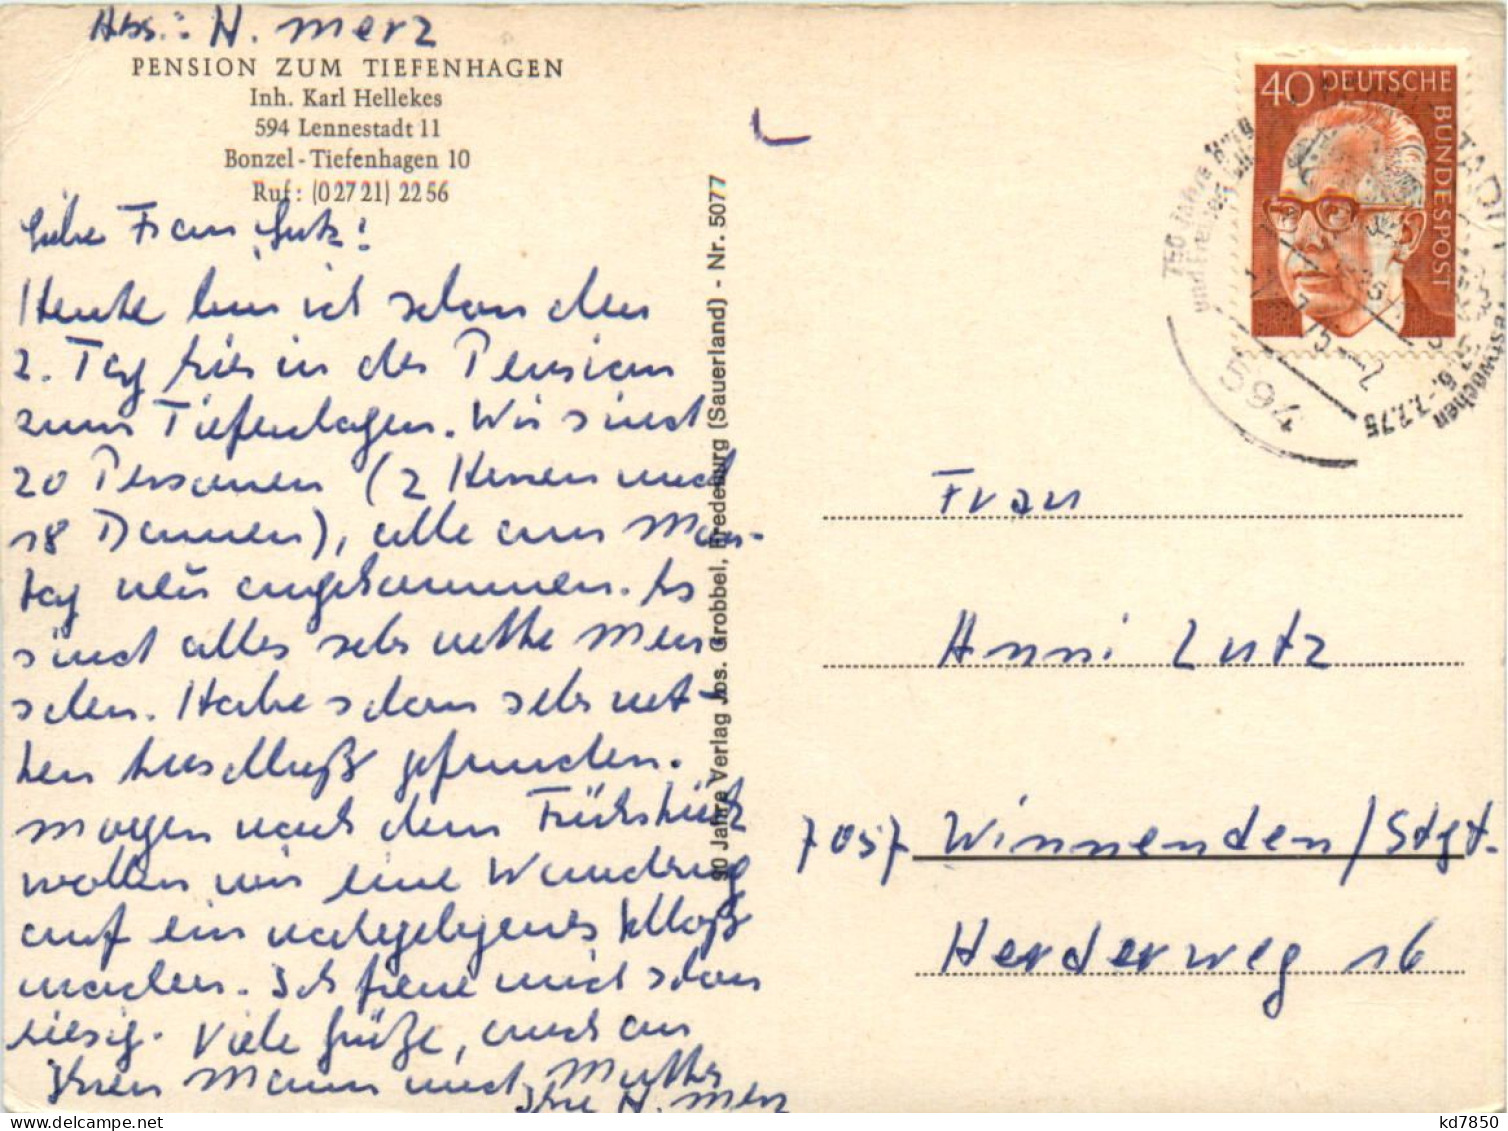 Abs.: H. Merz
PENSION ZUM TIEFENHAGEN
Inh. Karl Hellekes
594 Lennestadt 11
Bonzel - Tiefenhagen 10
Ruf: (0 27 21) 22 56
Liebe Frau Lutz!
Heute bin ich schon den
2. Tag hier in der Pension
zum Tiefenhagen. Wir sind
20 Personen (2 Herren und
18 Damen), alle am Mon-
tag neu angekommen. Es
sind alles sehr nette Men
schen. Habe schon sehr net-
ten Anschluß gefunden.
Morgen nach dem Frühstück
wollen wir eine Wandrung
auf ein nahegelegenes Schloß
machen. Ich freue mich schon
riesig. Viele Grüße, auch an
Ihren Mann und Mutter
Ihre H. Merz
90 Jahre Verlag Jos. Grobbel, Fredeburg (Sauerland) - Nr. 5077
40 DEUTSCHE
BUNDESPOST
750 Jahre
und
594
Festwochen
6.-7.7.75
Frau
Anni Lutz
7057 Winnenden/Stgt.
Herderweg 16
kd7850